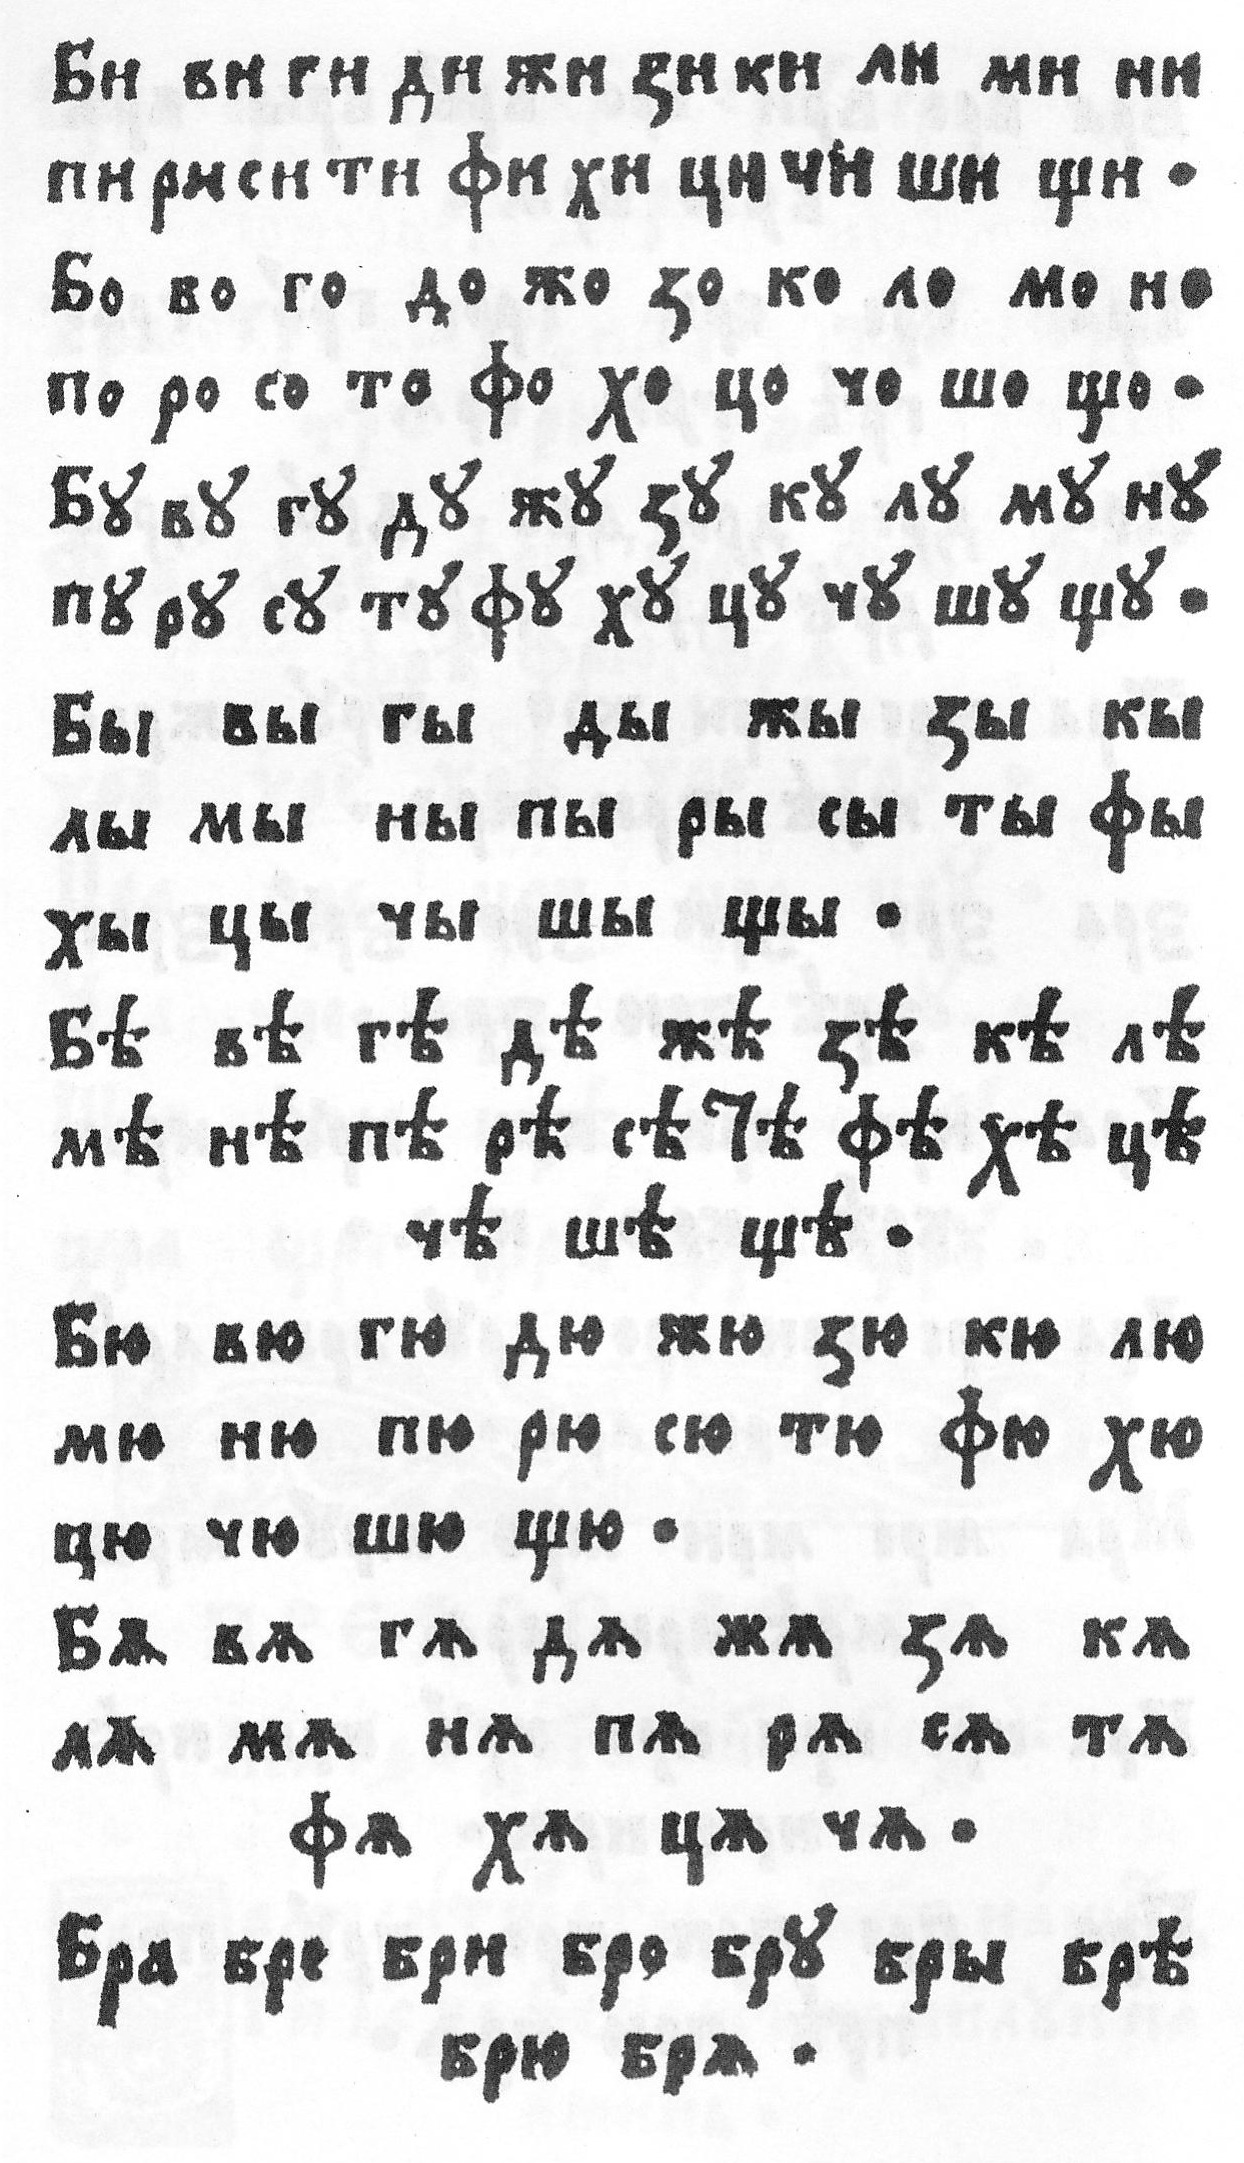 Би ви ги ди жи ꙁи ки ли ми ни
пи ри си ти фи хи ци чи ши щи ·
Бо во го до жо ꙁо ко ло мо но
по ро со то фо хо цо чо шо що ·
Бꙋ вꙋ гꙋ дꙋ жꙋ ꙁꙋ кꙋ лꙋ мꙋ нꙋ
пꙋ рꙋ сꙋ тꙋ фꙋ хꙋ цꙋ чꙋ шꙋ щꙋ ·
Бы вы гы ды жы ꙁы кы
лы мы ны пы ры сы ты фы
хы цы чы шы щы ·
Бѣ вѣ гѣ дѣ жѣ ꙁѣ кѣ лѣ
мѣ нѣ пѣ рѣ сѣ тѣ фѣ хѣ цѣ
чѣ шѣ щѣ ·
Бю вю гю дю жю ꙁю кю лю
мю ню пю рю сю тю фю хю
цю чю шю щю ·
Бѧ вѧ гѧ дѧ жѧ ꙁѧ кѧ
лѧ мѧ нѧ пѧ рѧ сѧ тѧ
фѧ хѧ цѧ чѧ ·
Бра бре бри бро брꙋ бры брѣ
брю брѧ ·